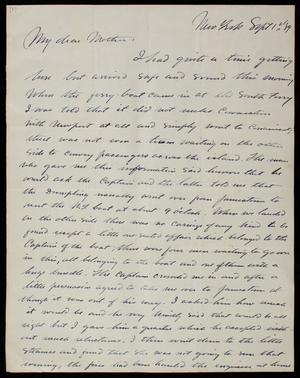 New York Sept 1st 89
My dear Mother:
I had quite a time getting
here but arrived safe and sound this morning
When the ferry boat came in at the South Ferry
I was told that it did not make connection
with Newport at all and simply went to Conanicut,
there was not even a team waiting on the other
side to convey passengers across the island. The man
who gave me this information said however that he
would ask the Captain and the latter told me that
the Dumpling usually went over from Jamestown to
meet the NY boat at about 9 oclock. When we landed
on the other side there was no carriage of any kind to be
found except a little one seated affair which belonged to the
Captain of the boat, there were four men waiting to go over
in this, all belonging to the boat and one of them with a
huge bundle. The Captain crowded me in and after a
little persuasion agreed to take me over to Jamestown al
though it was out of his way. I asked him how much
it would be and he very kindly said that would be all
right but I gave him a quarter which he accepted with
out much reluctance. I then went down to the little
steamer and found that she was not going to run that
evening, the fires had been hauled the engineer at home